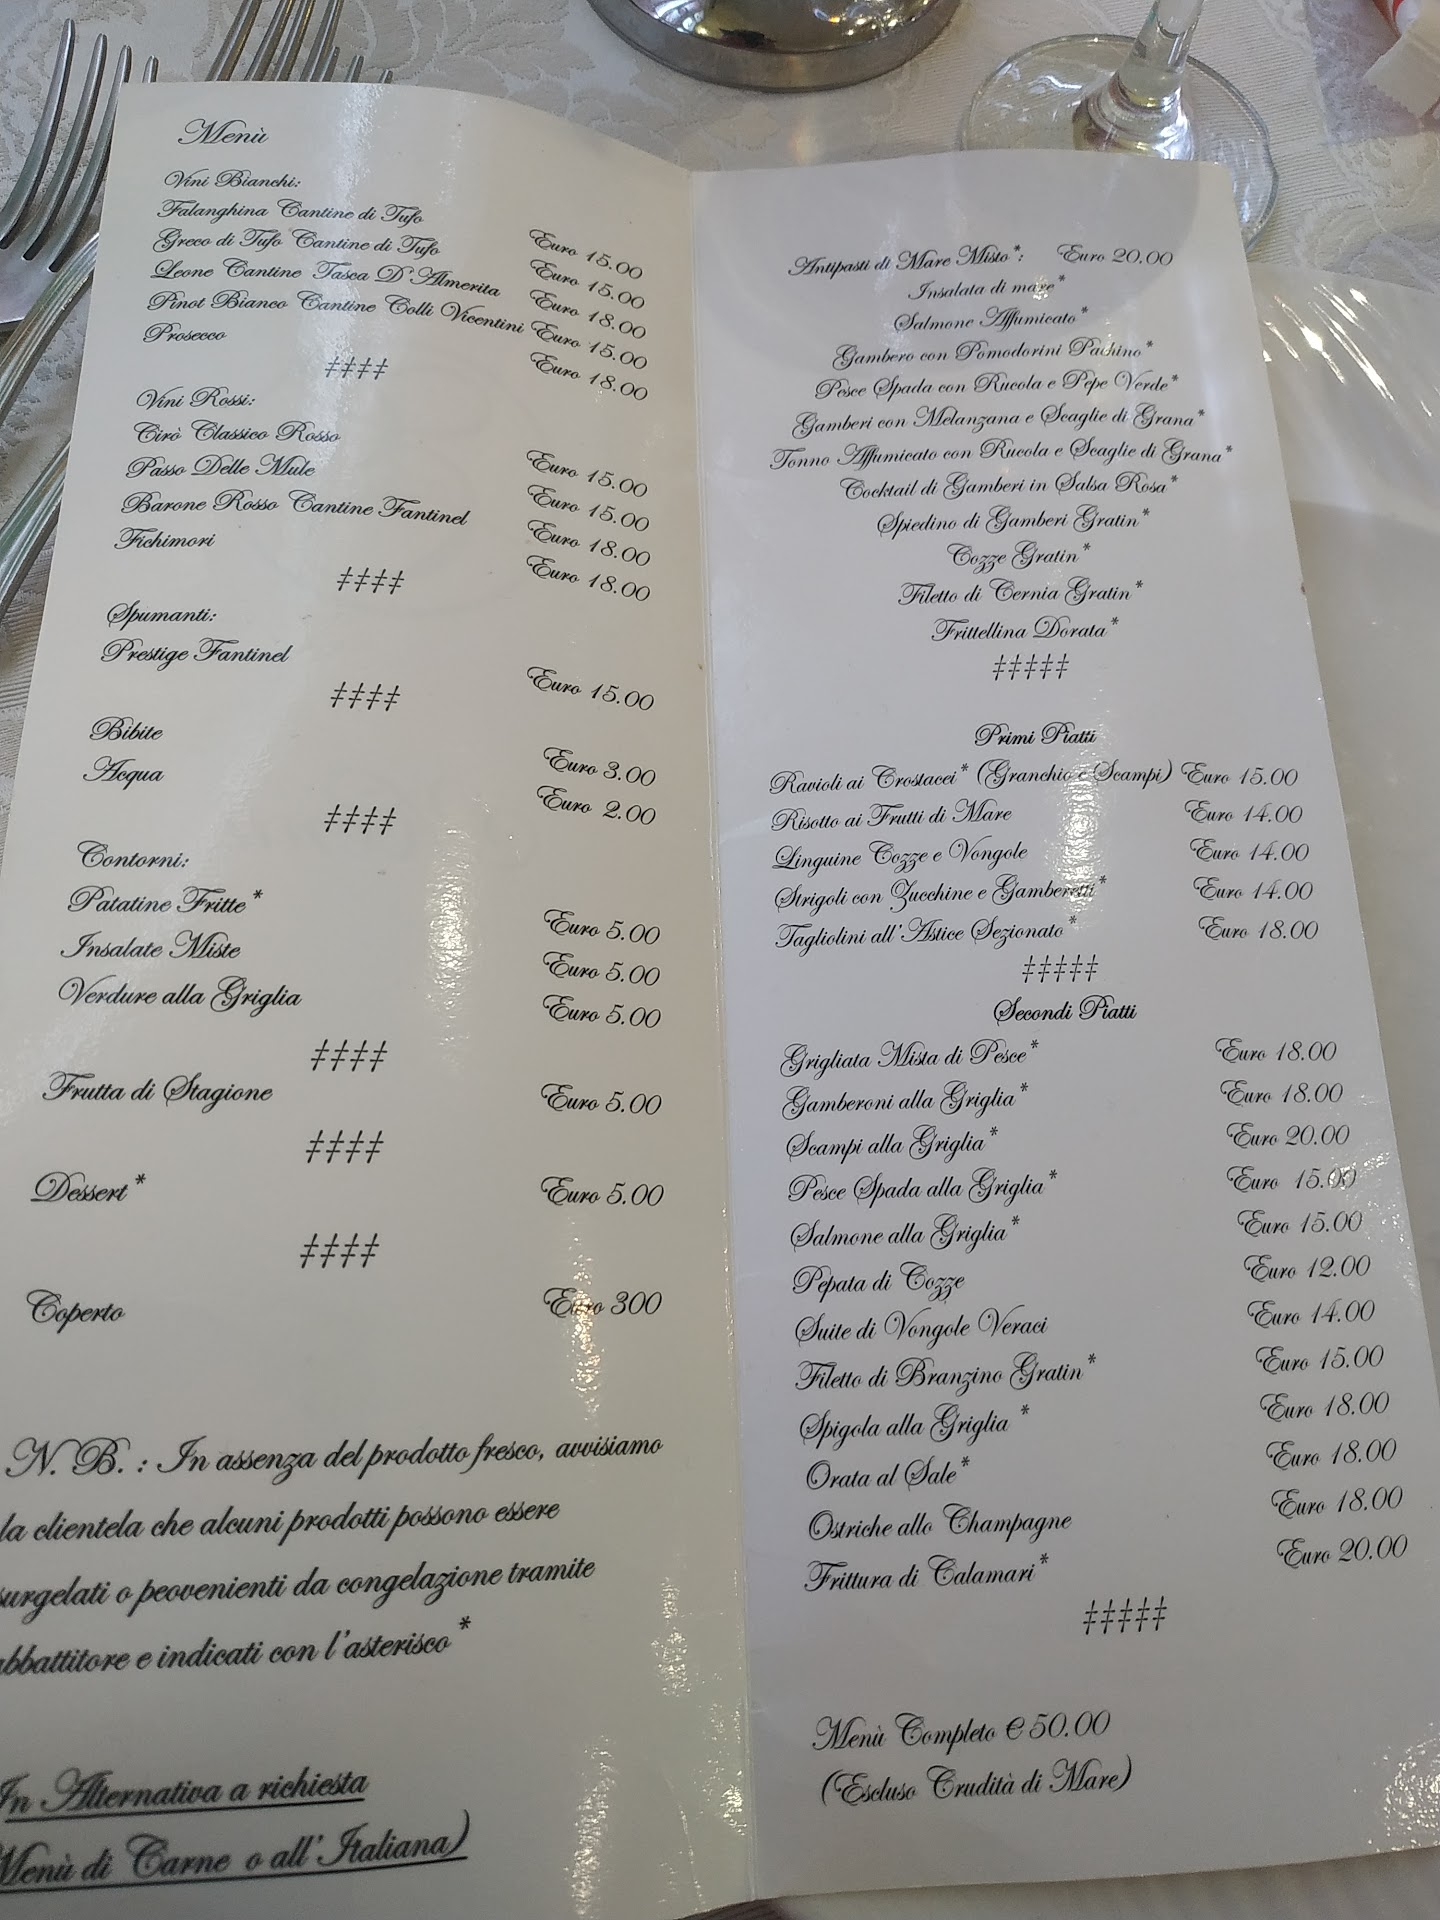 Menù
Vini Bianchi:
Falanghina Cantine di Tufo Euro 15.00
Greco di Tufo Cantine di Tufo Euro 15.00
Leone Cantine Tasca D'Almerita Euro 18.00
Pinot Bianco Cantine Colli Vicentini Euro 15.00
Prosecco Euro 18.00
‡‡‡‡
Vini Rossi:
Cirò Classico Rosso Euro 15.00
Passo Delle Mule Euro 15.00
Barone Rosso Cantine Fantinel Euro 18.00
Fichimori Euro 18.00
‡‡‡‡
Spumanti:
Prestige Fantinel Euro 15.00
‡‡‡‡
Bibite Euro 3.00
Acqua Euro 2.00
‡‡‡‡
Contorni:
Patatine Fritte* Euro 5.00
Insalate Miste Euro 5.00
Verdure alla Griglia Euro 5.00
‡‡‡‡
Frutta di Stagione Euro 5.00
‡‡‡‡
Dessert* Euro 5.00
‡‡‡‡
Coperto Euro 300
N. B. : In assenza del prodotto fresco, avvisiamo
la clientela che alcuni prodotti possono essere
surgelati o peovenienti da congelazione tramite
abbattitore e indicati con l'asterisco*
In Alternativa a richiesta
Menù di Carne o all'Italiana)
Antipasti di Mare Misto*: Euro 20.00
Insalata di mare*
Salmone Affumicato*
Gambero con Pomodorini Pachino*
Pesce Spada con Rucola e Pepe Verde*
Gamberi con Melanzana e Scaglie di Grana*
Tonno Affumicato con Rucola e Scaglie di Grana*
Cocktail di Gamberi in Salsa Rosa*
Spiedino di Gamberi Gratin*
Cozze Gratin*
Filetto di Cernia Gratin*
Frittellina Dorata*
‡‡‡‡‡
Primi Piatti
Ravioli ai Crostacei* (Granchio e Scampi) Euro 15.00
Risotto ai Frutti di Mare Euro 14.00
Linguine Cozze e Vongole Euro 14.00
Strigoli con Zucchine e Gamberetti* Euro 14.00
Tagliolini all'Astice Sezionato* Euro 18.00
‡‡‡‡‡
Secondi Piatti
Grigliata Mista di Pesce* Euro 18.00
Gamberoni alla Griglia* Euro 18.00
Scampi alla Griglia* Euro 20.00
Pesce Spada alla Griglia* Euro 15.00
Salmone alla Griglia* Euro 15.00
Pepata di Cozze Euro 12.00
Suite di Vongole Veraci Euro 14.00
Filetto di Branzino Gratin* Euro 15.00
Spigola alla Griglia * Euro 18.00
Orata al Sale* Euro 18.00
Ostriche allo Champagne Euro 18.00
Frittura di Calamari* Euro 20.00
‡‡‡‡‡
Menù Completo € 50.00
(Escluso Crudità di Mare)